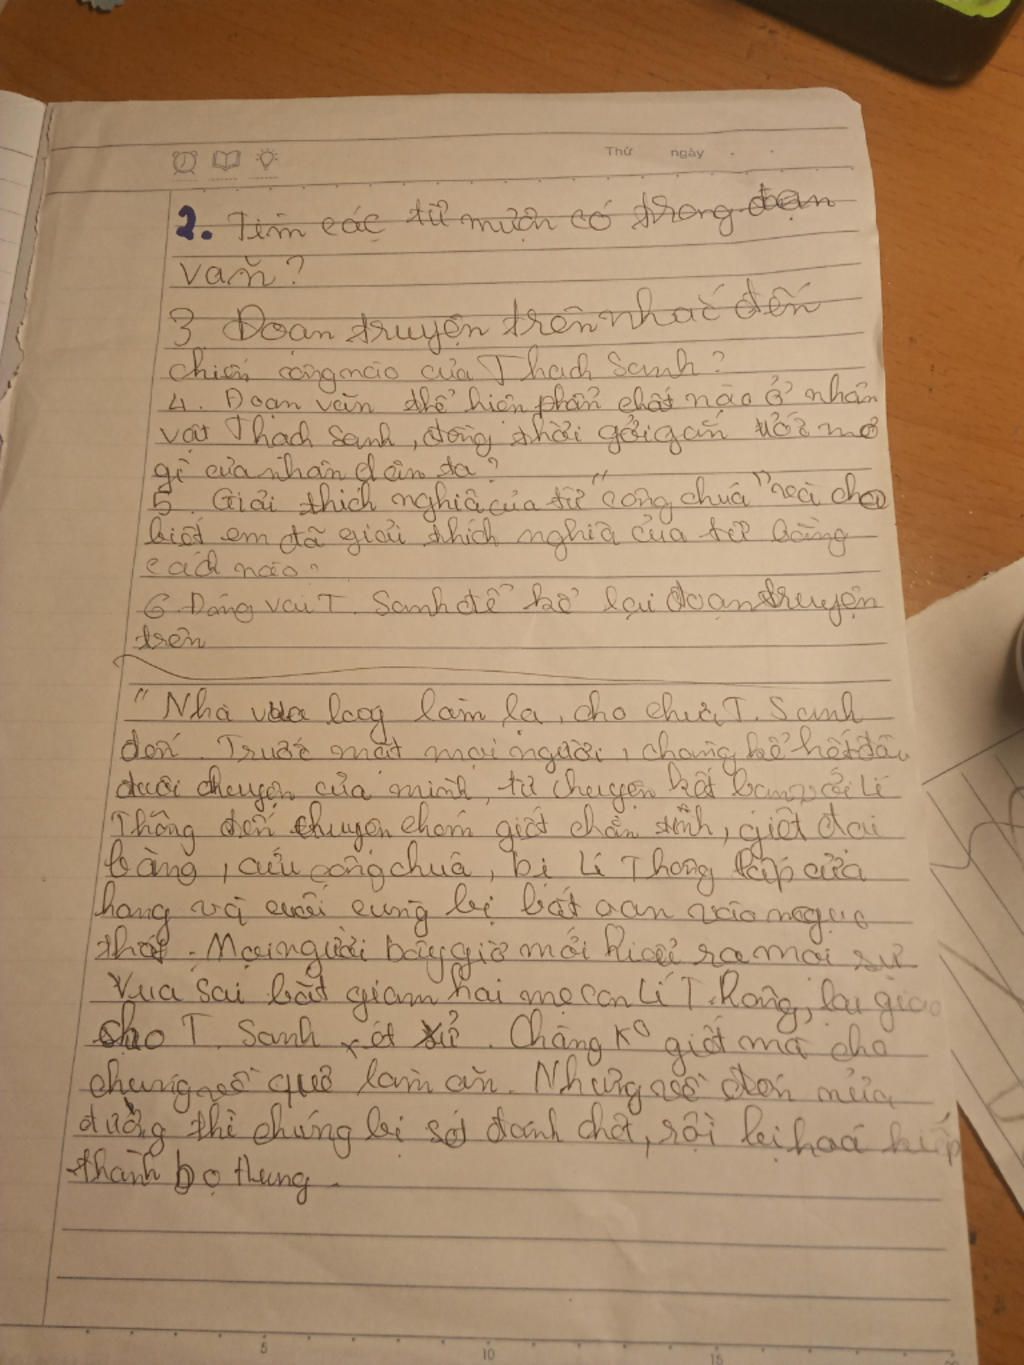 Thứ ngày
2. Tìm các từ mượn có trong đoạn
văn?
3 Đoạn truyện trên nhắc đến
chiến công nào của Thạch Sanh?
4. Đoạn văn thể hiện phẩm chất nào ở nhân
vật Thạch Sanh, đồng thời gởi gắn ước mơ
gì của nhân dân ta?
5. Giải thích nghĩa của từ "công chúa" và cho
biết em đã giải thích nghĩa của từ bằng
cách nào?
6. Đóng vai T. Sanh để kể lại đoạn truyện
trên
"Nhà vua loog làm lạ, cho chứ T. Sanh
đến. Trước mặt mọi người, chàng kể hết đầu
đuôi chuyện của mình, từ chuyện kết bạn với Lí
Thông đến chuyện chém giết chằn tinh, giết đại
bàng, cứu công chúa, bị Lí Thông lấp cửa
hang và cuối cùng bị bắt oan vào ngục
thất. Mọi người bây giờ mới hiểu ra mọi sự
Vua sai bắt giam hai mẹ con Lí Thông, lại giao
cho T. Sanh xét xử. Chàng Kº giết mà cho
chúng về quê làm ăn. Nhưng về đến nửa
đường thì chúng bị sét đánh chết, rồi bị hoá kiếp
thành bọ hung.
5 10 15